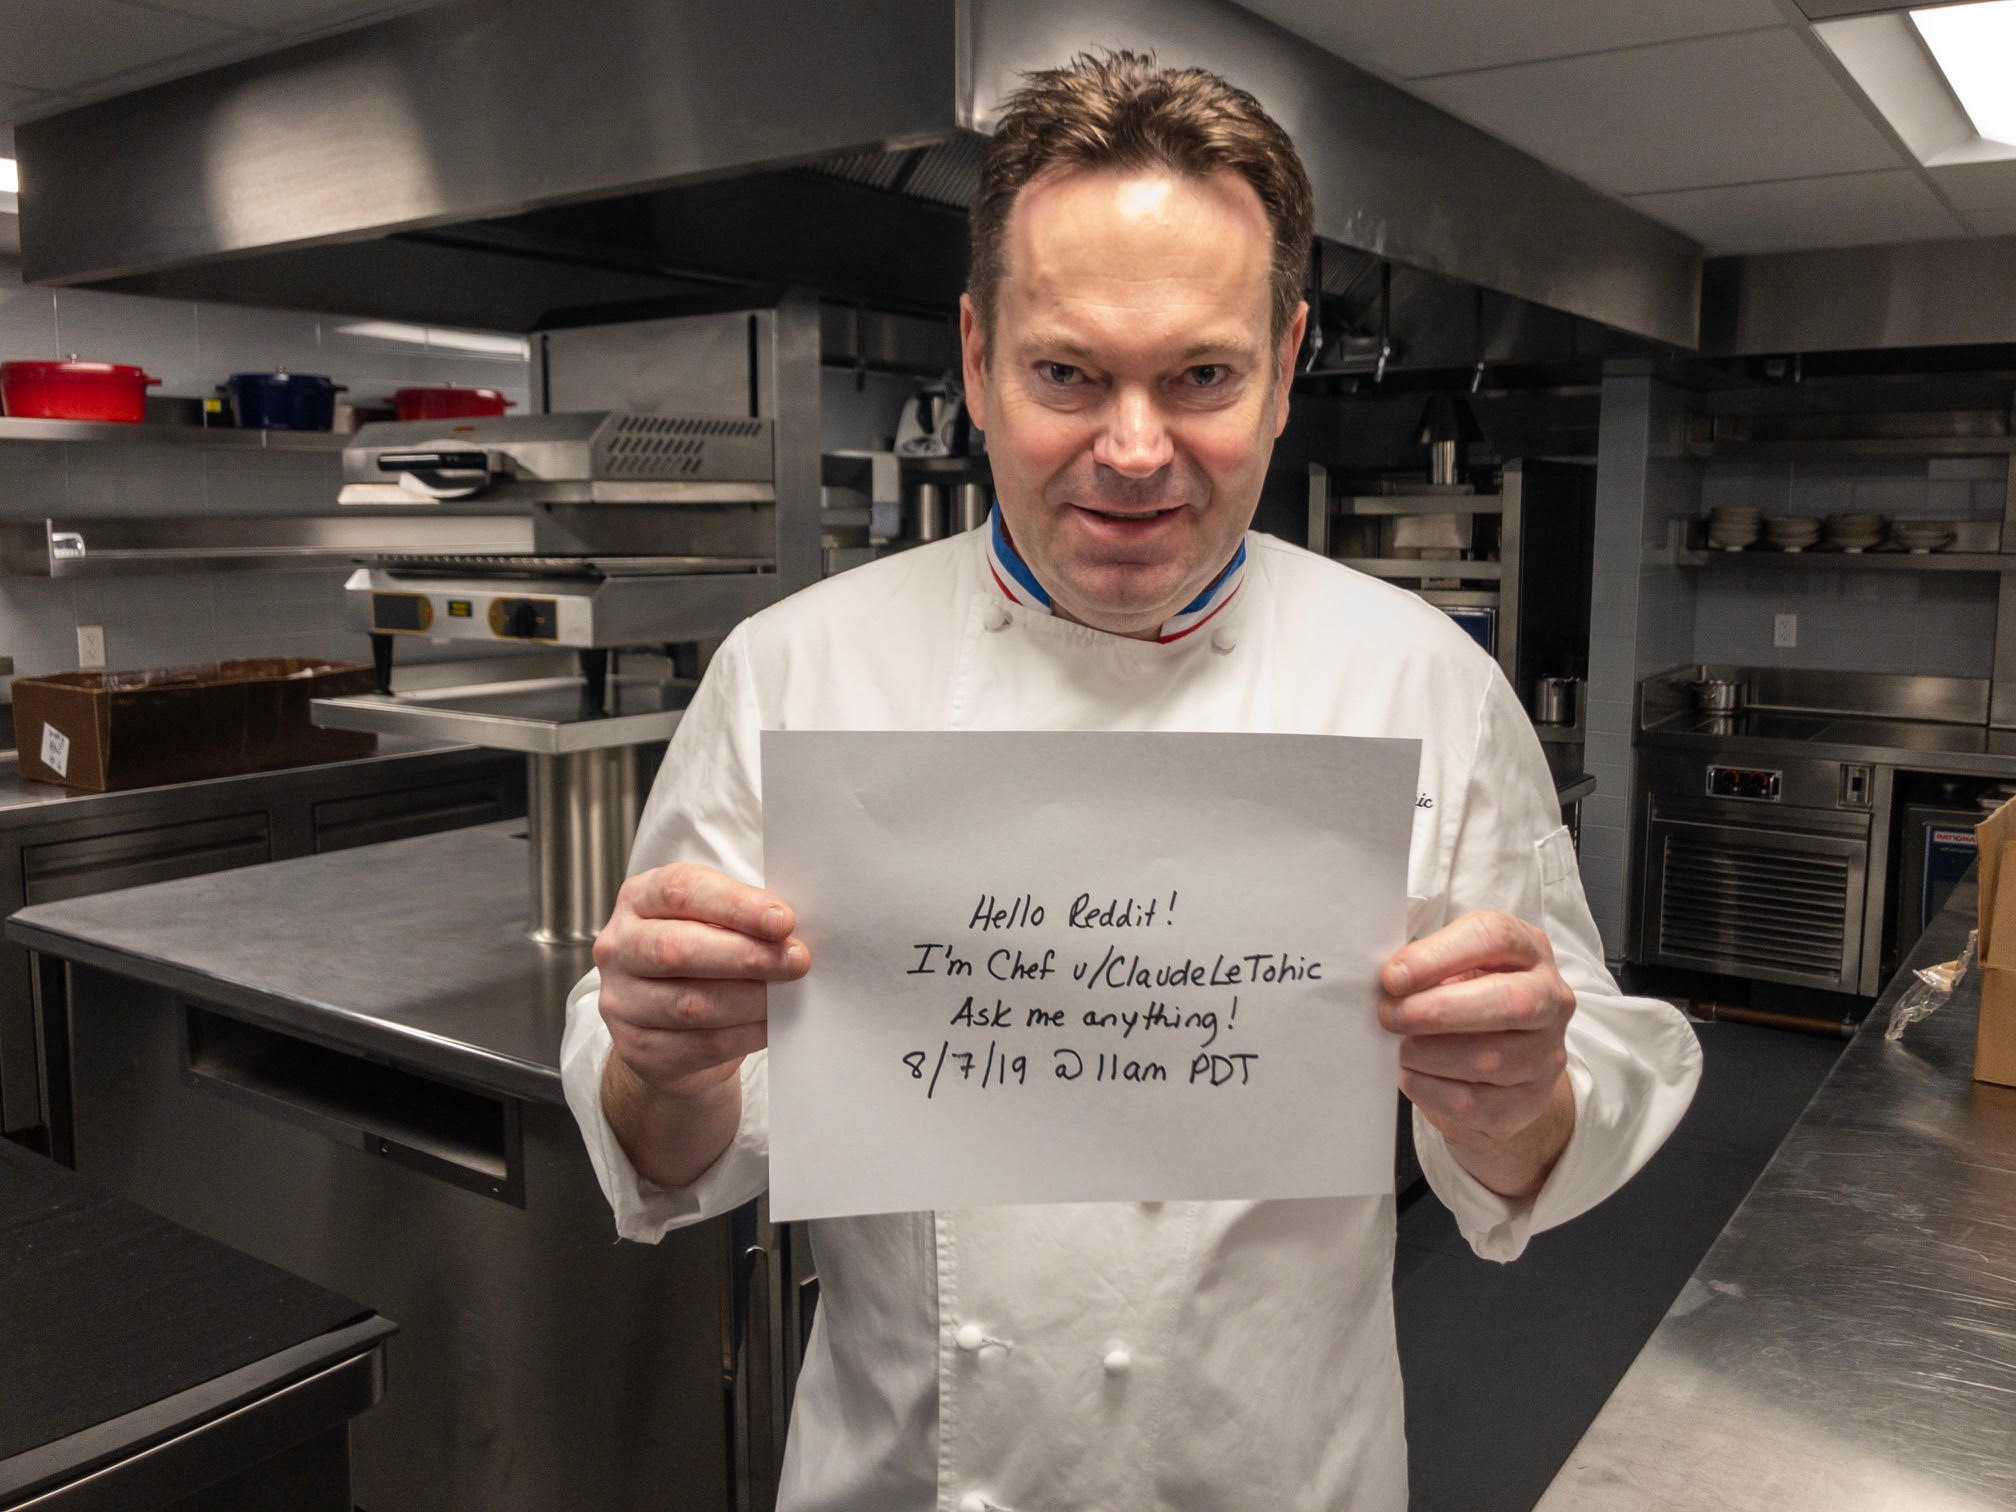 Hello Reddit!
I'm Chef u/ClaudeLeTohic
Ask me anything!
8/7/19 @ 11am PDT
ic